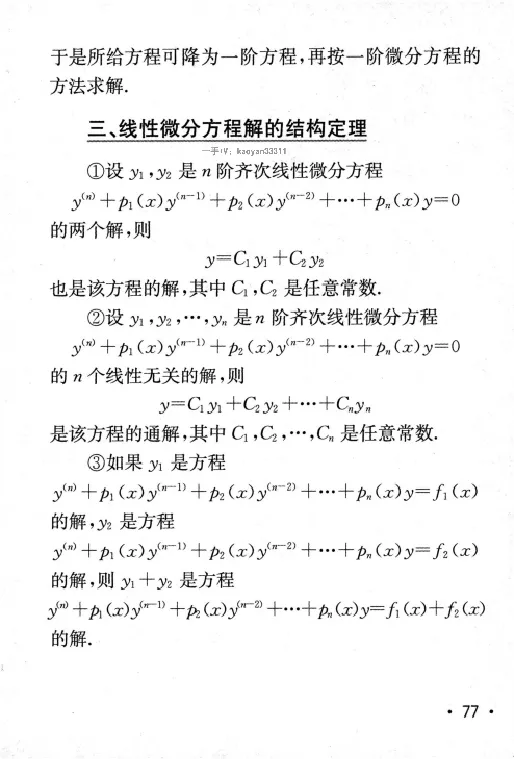 于是所给方程可降为一阶方程,再按一阶微分方程的
方法求解.
三、线性微分方程解的结构定理
一手V: kaoyan33311
①设 y₁,y₂ 是 n 阶齐次线性微分方程
y⁽ⁿ⁾+p₁(x)y⁽ⁿ⁻¹⁾+p₂(x)y⁽ⁿ⁻²⁾+…+pₙ(x)y=0
的两个解,则
y=C₁y₁+C₂y₂
也是该方程的解,其中 C₁,C₂ 是任意常数.
②设 y₁,y₂,…,yₙ 是 n 阶齐次线性微分方程
y⁽ⁿ⁾+p₁(x)y⁽ⁿ⁻¹⁾+p₂(x)y⁽ⁿ⁻²⁾+…+pₙ(x)y=0
的 n 个线性无关的解,则
y=C₁y₁+C₂y₂+…+Cₙyₙ
是该方程的通解,其中 C₁,C₂,…,Cₙ 是任意常数.
③如果 y₁ 是方程
y⁽ⁿ⁾+p₁(x)y⁽ⁿ⁻¹⁾+p₂(x)y⁽ⁿ⁻²⁾+…+pₙ(x)y=f₁(x)
的解,y₂ 是方程
y⁽ⁿ⁾+p₁(x)y⁽ⁿ⁻¹⁾+p₂(x)y⁽ⁿ⁻²⁾+…+pₙ(x)y=f₂(x)
的解,则 y₁+y₂ 是方程
y⁽ⁿ⁾+p₁(x)y⁽ⁿ⁻¹⁾+p₂(x)y⁽ⁿ⁻²⁾+…+pₙ(x)y=f₁(x)+f₂(x)
的解.
· 77 ·